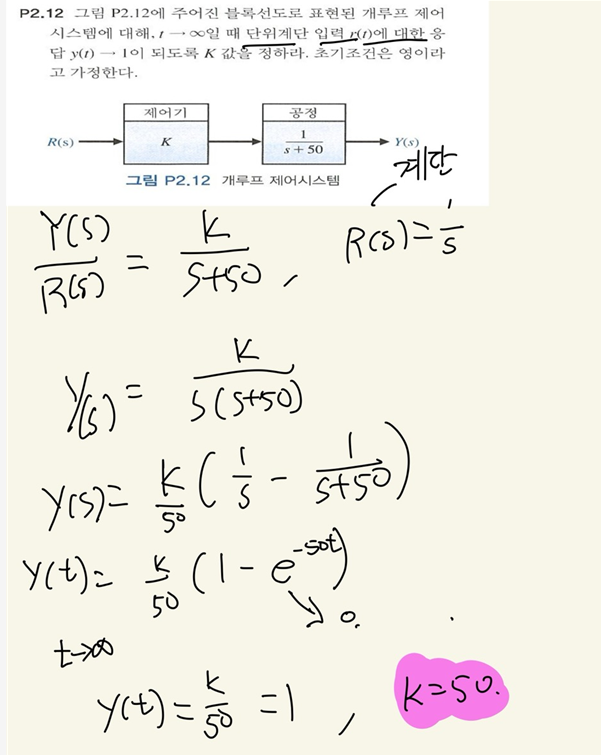 P2.12 그림 P2.12에 주어진 블록선도로 표현된 개루프 제어
시스템에 대해, t → ∞일 때 단위계단 입력 r(t)에 대한 응
답 y(t) → 1이 되도록 K 값을 정하라. 초기조건은 영이라
고 가정한다.
제어기 공정
R(s) K 1/(s + 50) Y(s)
그림 P2.12 개루프 제어시스템
계단
Y(s)/R(s) = K/(s+50), R(s) = 1/s
Y(s) = K/(s(s+50))
Y(s) = K/50 (1/s - 1/(s+50))
Y(t) = K/50 (1 - e^-50t)
0.
t→∞
Y(t) = K/50 = 1, K=50.